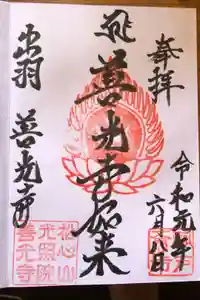 奉拝
令和元年
六月十八日
善光寺如来
出羽
善光寺
松心山
光照院
善光寺